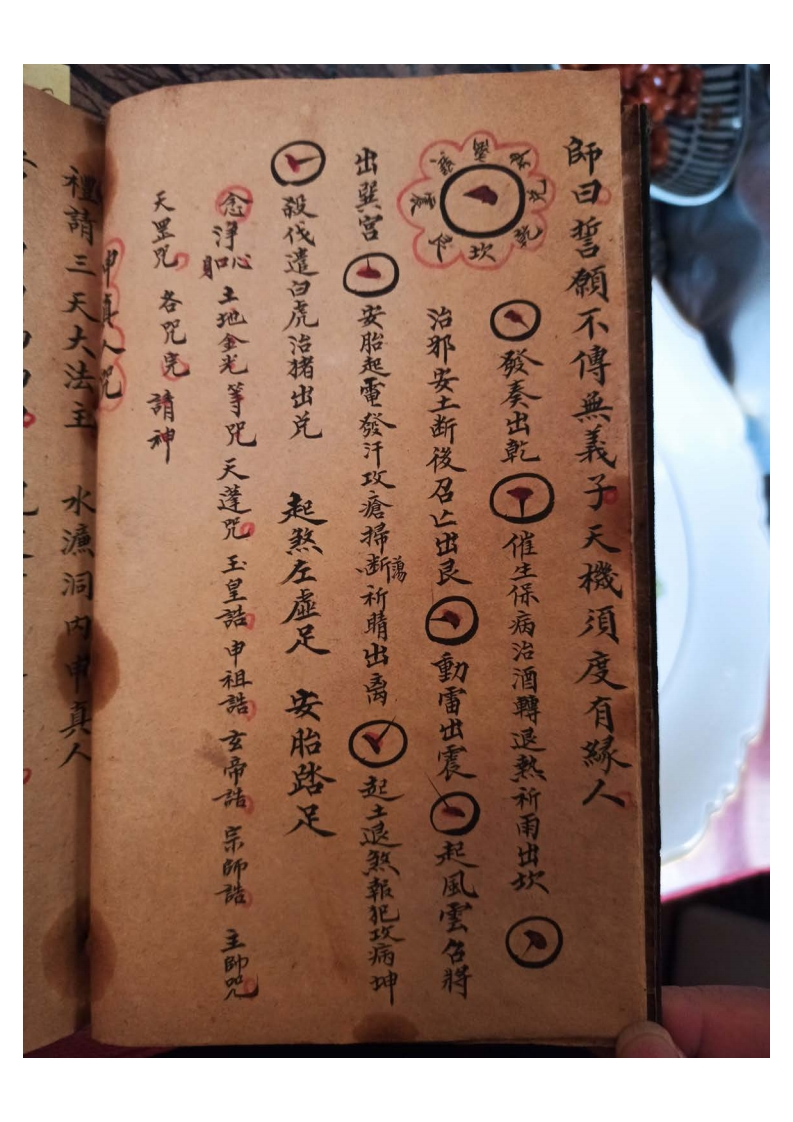 師曰誓願不傳無義子天機須度有緣人
坎 乾 兌 坤 離 巽 震 艮
發奏出乾 催生保病治酒轉退熱祈雨出坎
治邪安土断後召亡出艮 動雷出震 起風雲召將
出巽宮 安胎起電發汗攻瘡掃断蕩祈晴出离 起土退煞報犯攻病坤
殺伐遣白虎治猪出兌 起煞左虛足 安胎踏足
念淨心身口 土地金光等咒 天蓬咒 玉皇誥 申祖誥 玄帝誥 宗師誥 主帥咒
天罡咒 各咒完 請神
申真人咒
禮請三天大法主 水濂洞內申真人